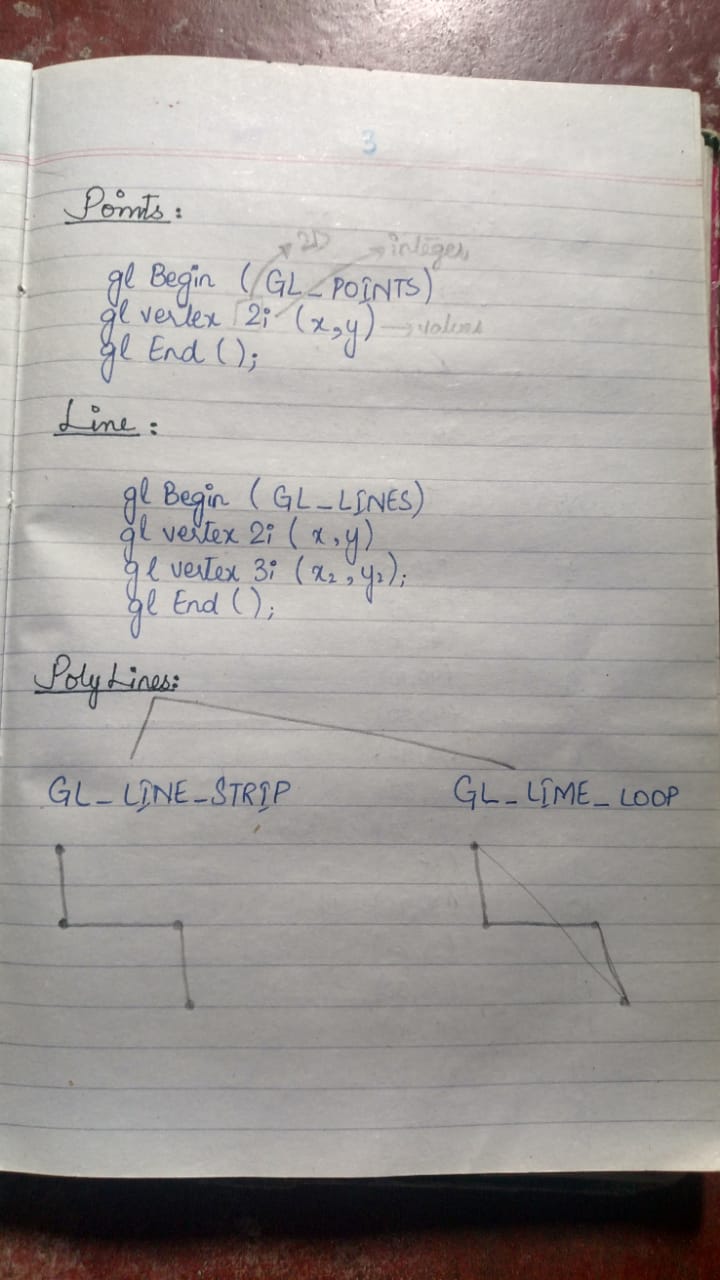 3
Points:
2D integer
gl Begin ( GL_POINTS)
gl vertex 2i (x,y) values
gl End ();
Line:
gl Begin ( GL_LINES)
gl vertex 2i ( x,y)
gl vertex 3i (x₂, y₂);
gl End ();
Poly Lines:
GL_LINE_STRIP GL_LIME_LOOP